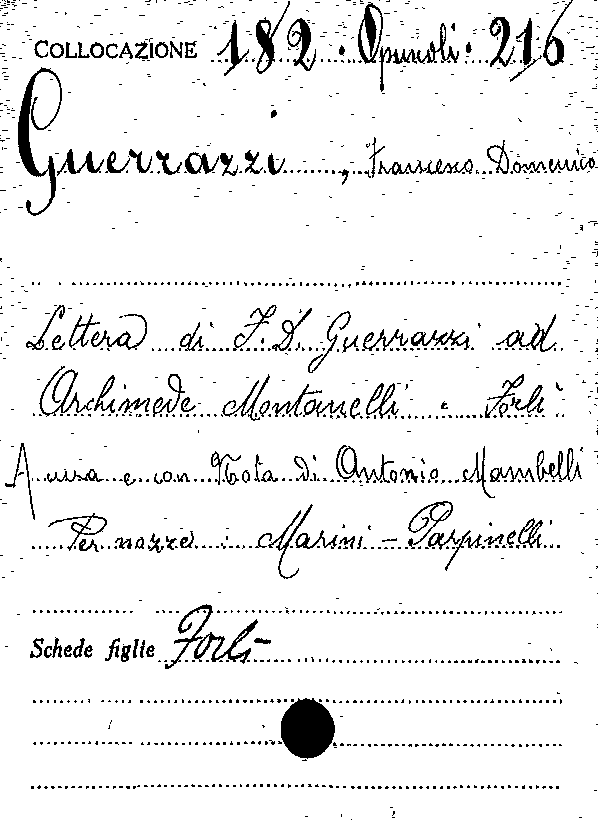 COLLOCAZIONE 182. Opuscoli. 216
Guerrazzi, Francesco Domenico
Lettera di F. D. Guerrazzi ad
Archimede Montanelli - Forlì
A cura e con Nota di Antonio Mambelli
Per nozze: Marini - Parpinelli
Schede figlie Forlì